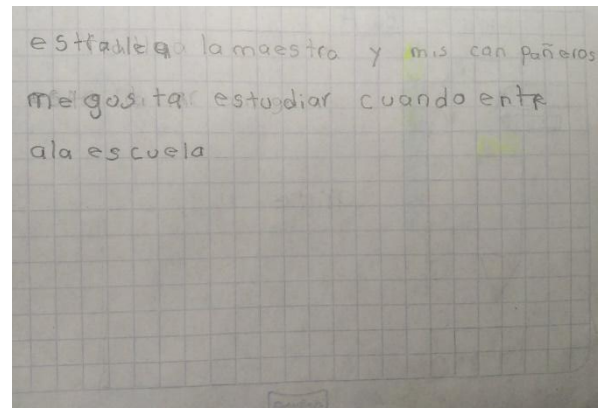 estrañlea a la maestra y mis can pañeros
me gosita estugdiar cuando ente
ala escuela